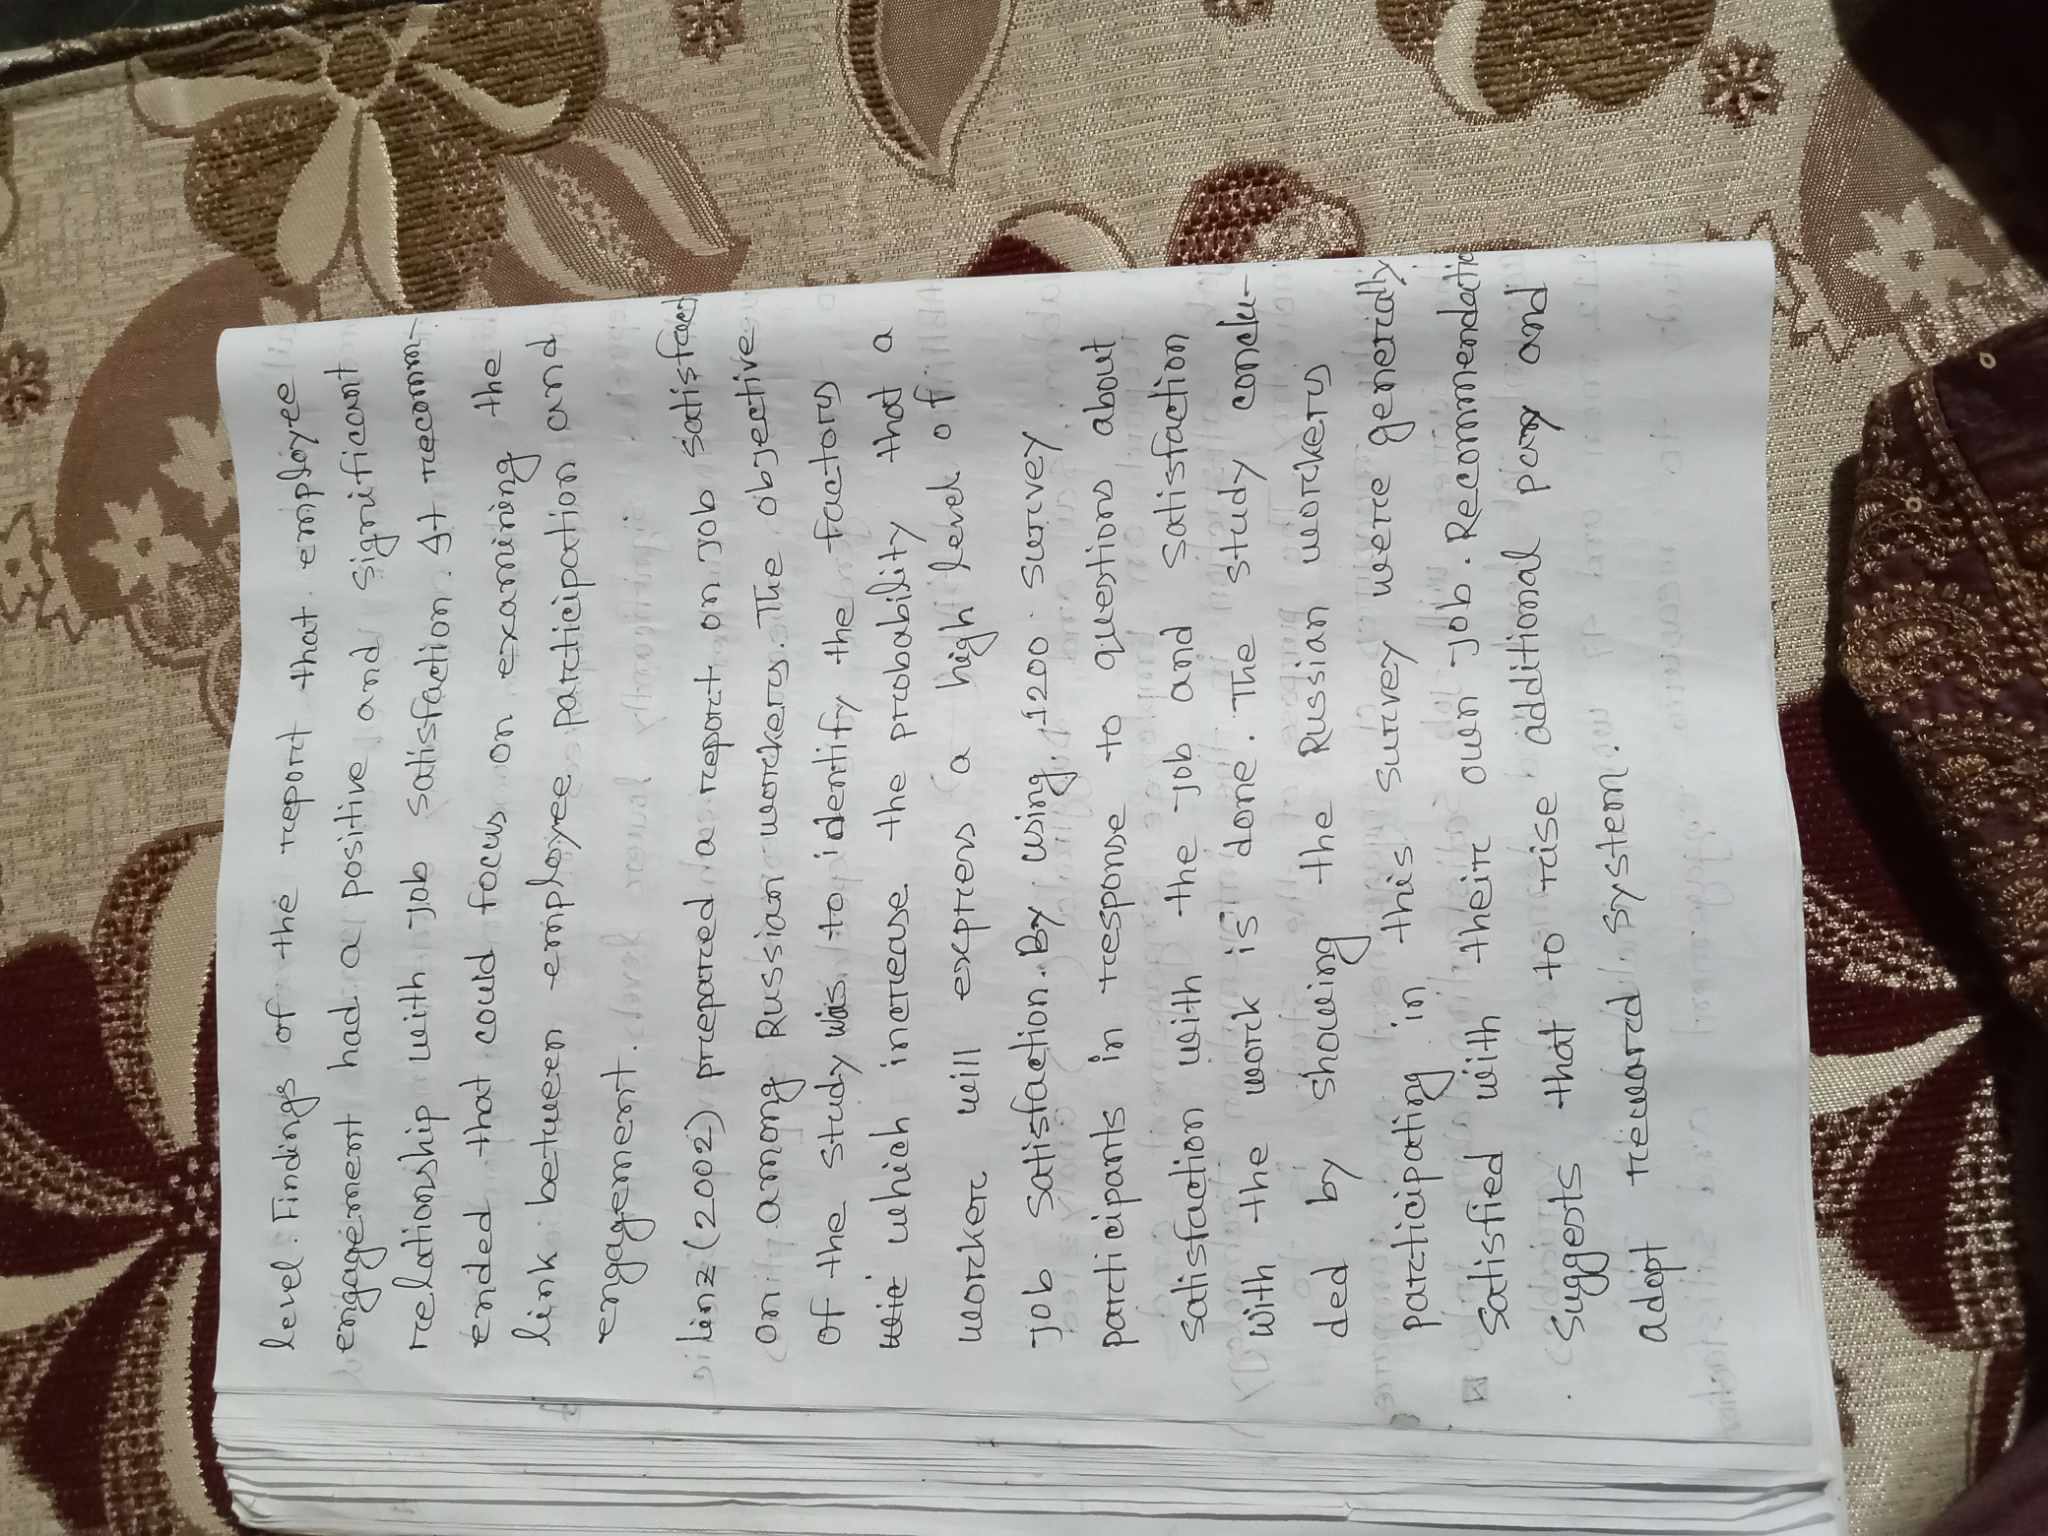 level. Findings of the report that employee
engagement had a positive and significant
relationship with Job satisfaction. It recomm-
ended that could focus on examining the
link between employee participation and
engagement.
linz (2002) prepared a report on Job satisfacti
on among Russian workers. The objective
of the study was to identify the factors
wic which increase the probability that a
worker will express a high level of
Job satisfaction. By using 1200 survey
participants in response to questions about
satisfaction with the Job and satisfaction
with the work is done. The study conclu-
ded by showing the Russian workers
participating in this survey were generally
satisfied with their own Job. Recommendatio
suggests that to rise additional pay and
adopt reward system.